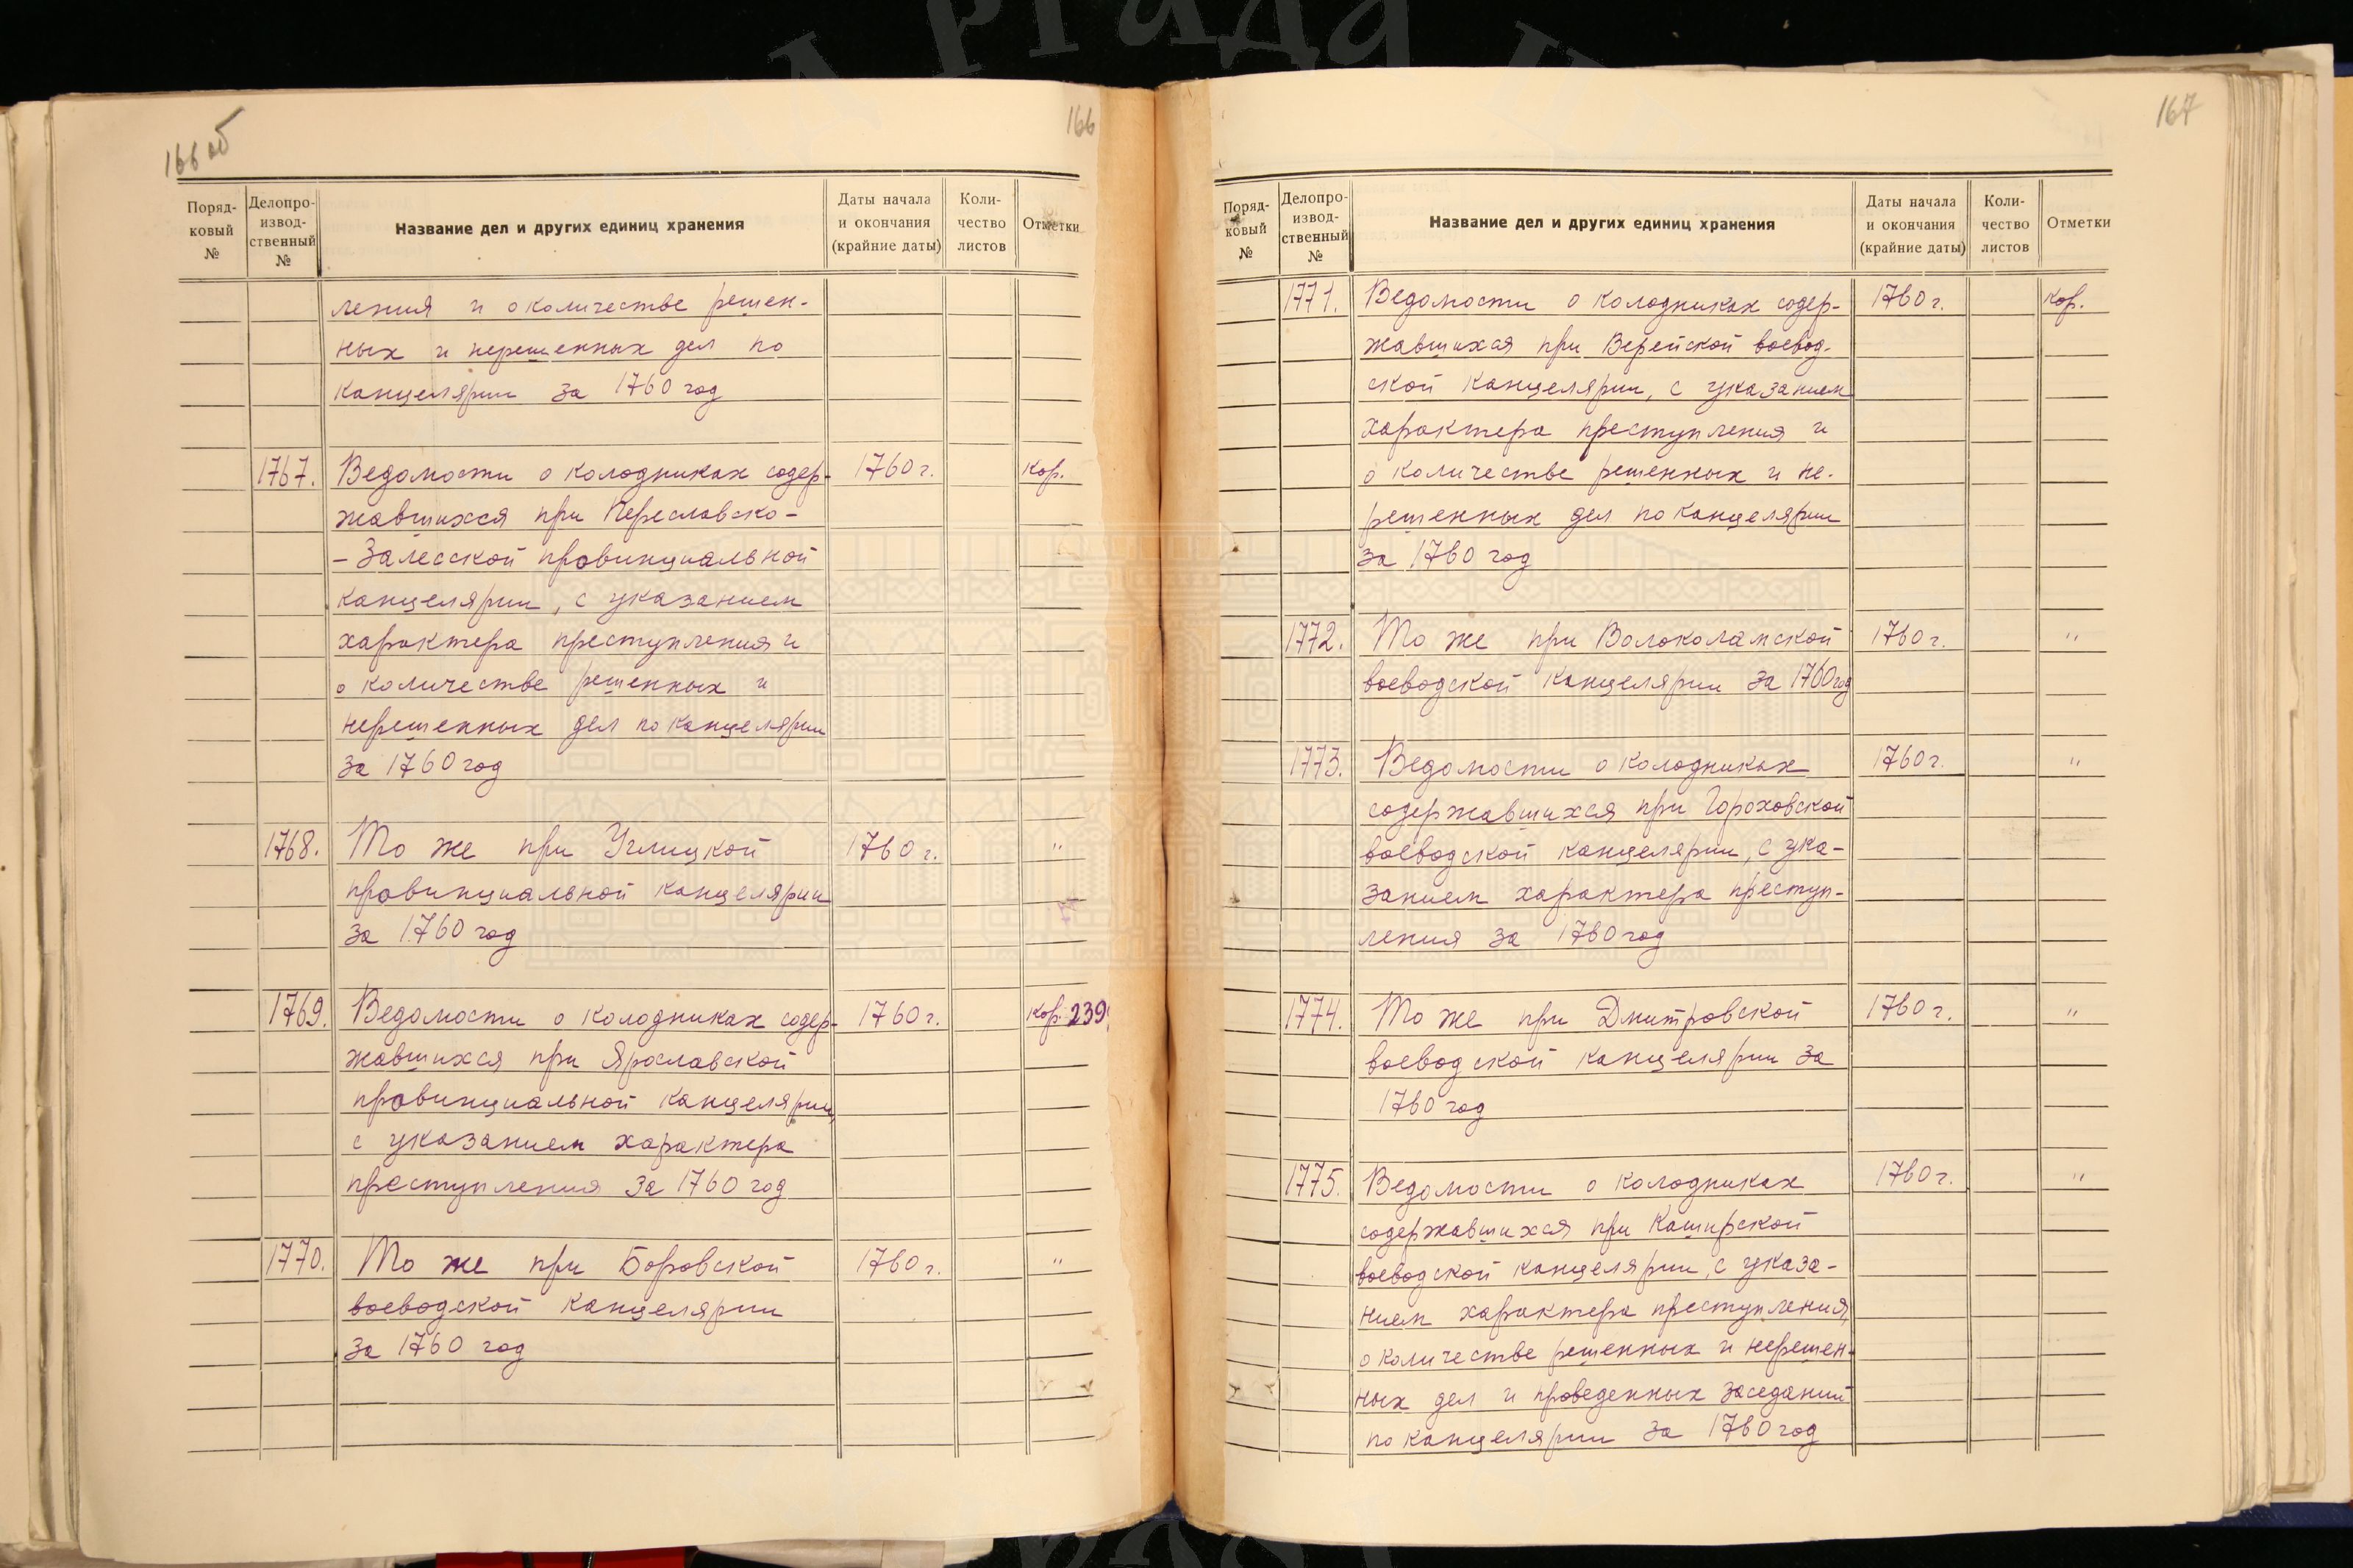 166 об
166
Поряд-
ковый
№
Делопро-
извод-
ственный
№
Название дел и других единиц хранения
Даты начала
и окончания
(крайние даты)
Коли-
чество
листов
Отметки
ления и о количестве решен-
ных и нерешенных дел по
канцелярии за 1760 год
1767. Ведомости о колодниках содер- 1760 г. кор.
жавшихся при Переславско-
- Залесской провинциальной
канцелярии, с указанием
характера преступления и
о количестве решенных и
нерешенных дел по канцелярии
за 1760 год
1768. То же при Углицкой 1760 г. "
провинциальной канцелярии
за 1760 год
1769. Ведомости о колодниках содер- 1760 г. кор. 239
жавшихся при Ярославской
провинциальной канцелярии,
с указанием характера
преступления за 1760 год
1770. То же при Боровской 1760 г. "
воеводской канцелярии
за 1760 год
167
Поряд-
ковый
№
Делопро-
извод-
ственный
№
Название дел и других единиц хранения
Даты начала
и окончания
(крайние даты)
Коли-
чество
листов
Отметки
1771. Ведомости о колодниках содер- 1760 г. кор.
жавшихся при Верейской воевод-
ской канцелярии, с указанием
характера преступления и
о количестве решенных и не-
решенных дел по канцелярии
за 1760 год
1772. То же при Волоколамской 1760 г. "
воеводской канцелярии за 1760 год
1773. Ведомости о колодниках 1760 г. "
содержавшихся при Гороховской
воеводской канцелярии, с ука-
занием характера преступ-
ления за 1760 год
1774. То же при Дмитровской 1760 г. "
воеводской канцелярии за
1760 год
1775. Ведомости о колодниках 1760 г. "
содержавшихся при Каширской
воеводской канцелярии, с указа-
нием характера преступления,
о количестве решенных и нерешен-
ных дел и проведенных заседаний
по канцелярии за 1760 год